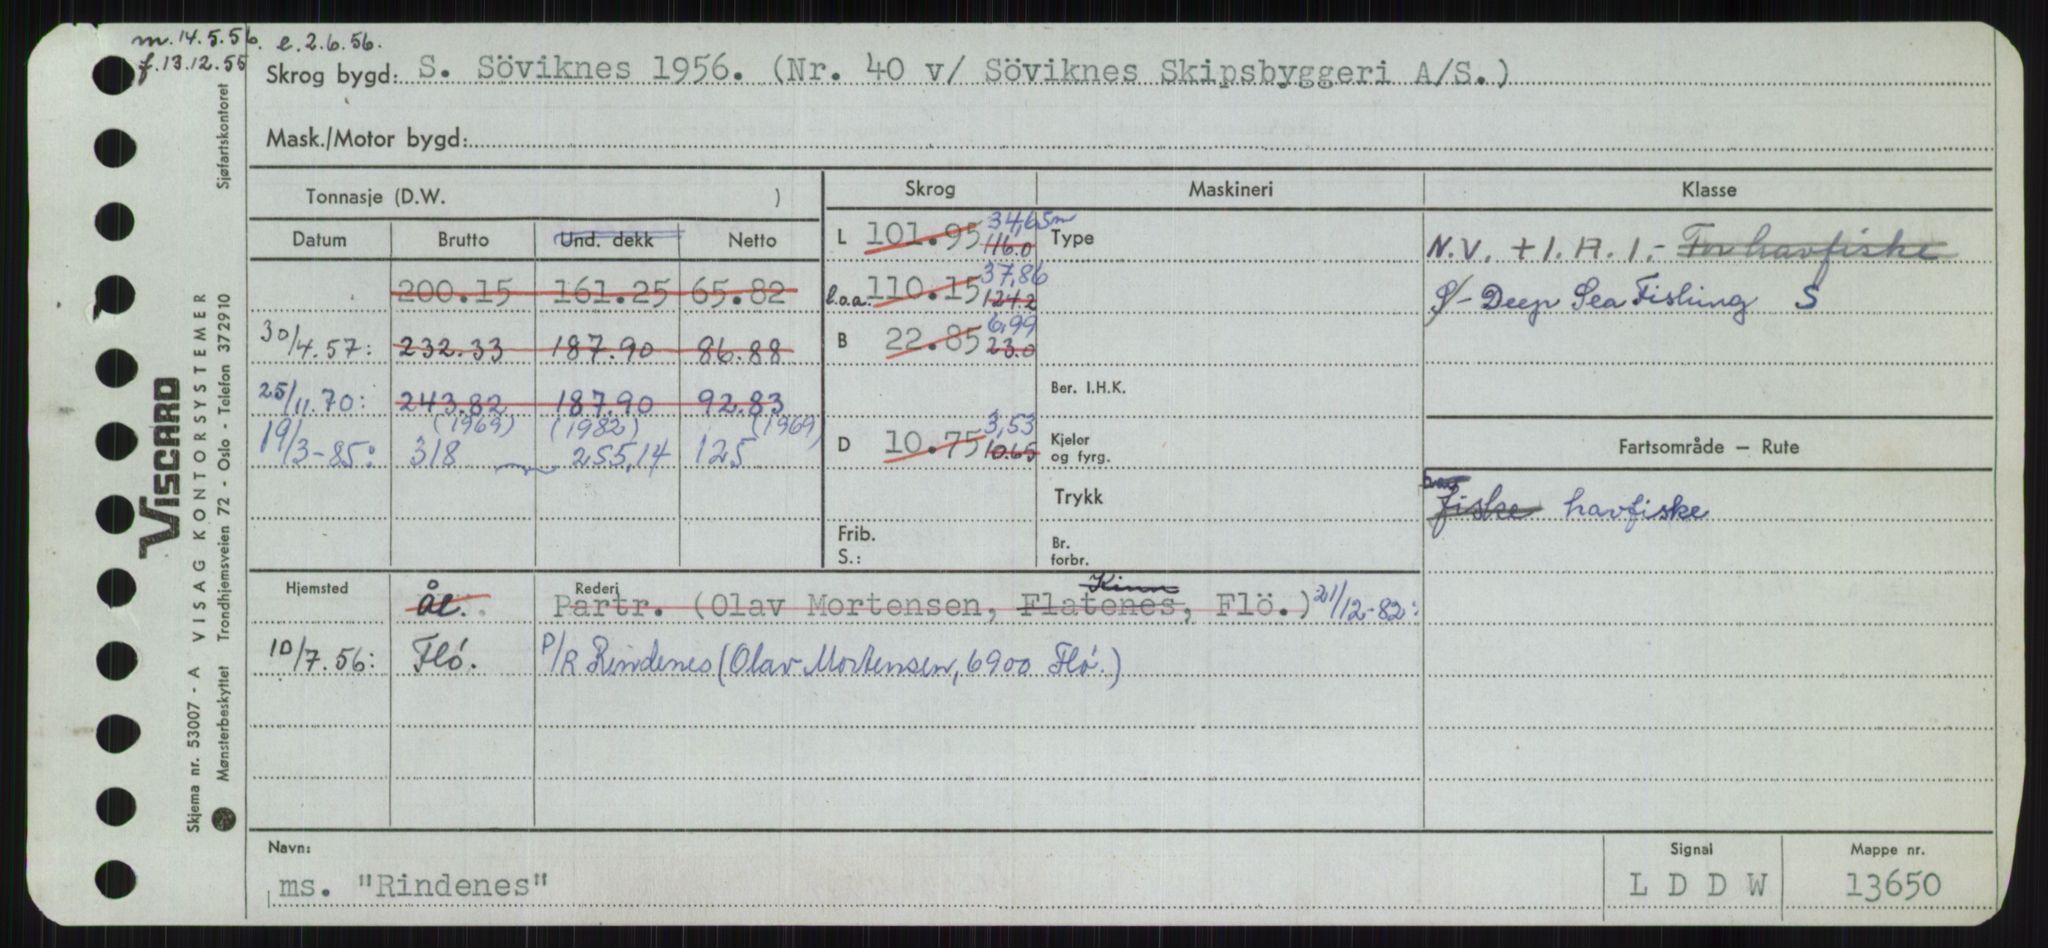 m. 14.5.56. e. 2.6.56.
f. 13.12.55
Skrog bygd: S. Söviknes 1956. (Nr. 40 v/ Söviknes Skipsbyggeri A/S.)
Mask./Motor bygd:
Tonnasje (D.W. )
Skrog Maskineri Klasse
Datum Brutto Und. dekk Netto
L 101.95 116.0 34,65m Type
N.V. +1.A.1.- For havfiske
200.15 161.25 65.82
l.o.a. 110.15 124.2 37,86
S/- Deep Sea Fishing S
30/4.57: 232.33 187.90 86.88
B 22.85 23.0 6,99
25/11.70: 243.82 187.90 92.83
Ber. I.H.K.
(1969) (1982) (1969)
19/3-85: 318 255,14 125
D 10.75 10.65 3,53
Kjeler og fyrg.
Fartsområde – Rute
Trykk
fiske havfiske
Frib.
S.:
Br. forbr.
Hjemsted Ål. Rederi Kinn
Partr. (Olav Mortensen, Flatenes, Flö.) 21/12-82:
10/7.56: Flö. P/R Rindenes (Olav Mortensen, 6900 Flö.)
Navn: Signal Mappe nr.
ms. "Rindenes" L D D W 13650
VISCARD
Skjema nr. 53007 - A VISAG KONTORSYSTEMER
Mønsterbeskyttet Trondhjemsveien 72 - Oslo - Telefon 372910 Sjøfartskontoret